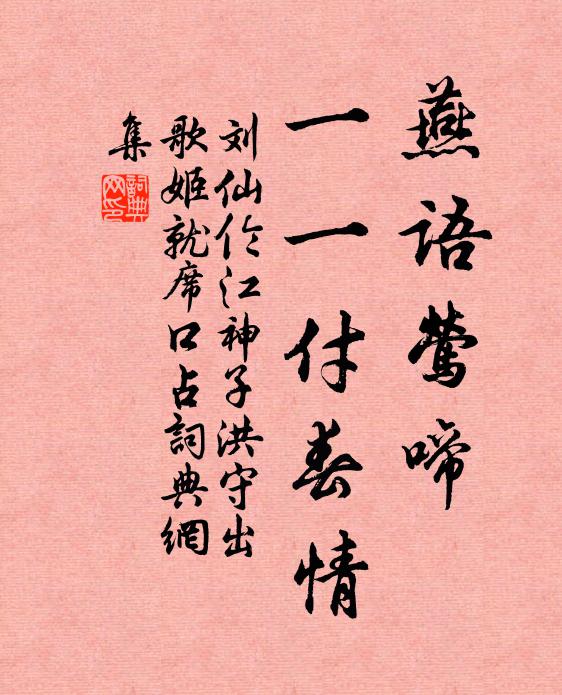 燕语莺啼
一一付春情
刘仙伦江神子洪守出
歌姬就席口占詞典網
集
詞典网印